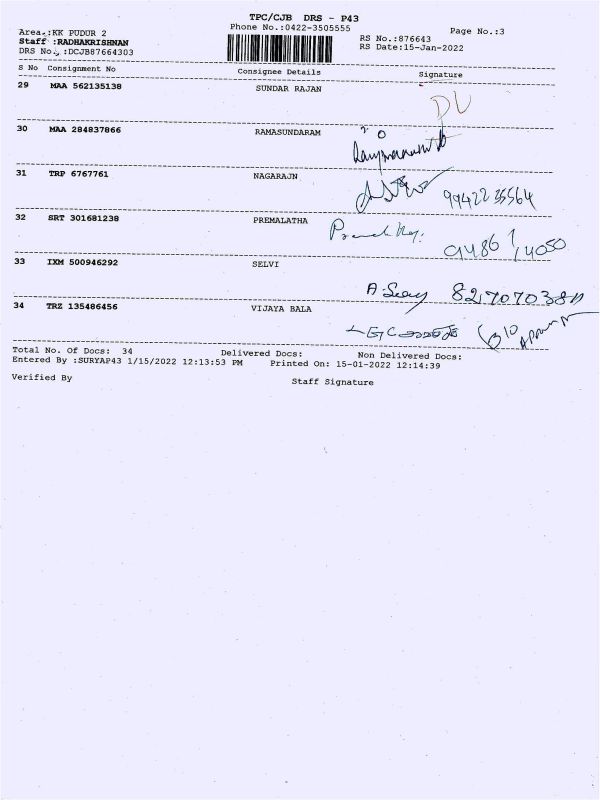 TPC/CJB DRS - P43
Phone No.:0422-3505555
Page No.:3
Area :KK PUDUR 2
Staff :RADHAKRISHNAN
DRS No. :DCJB87664303
RS No.:876643
RS Date:15-Jan-2022
S No Consignment No Consignee Details Signature
29 MAA 562135138 SUNDAR RAJAN
30 MAA 284837866 RAMASUNDARAM
31 TRP 6767761 NAGARAJN 9942235564
32 SRT 301681238 PREMALATHA
33 IXM 500946292 SELVI
34 TRZ 135486456 VIJAYA BALA
Total No. Of Docs: 34 Delivered Docs: Non Delivered Docs:
Entered By :SURYAP43 1/15/2022 12:13:53 PM Printed On: 15-01-2022 12:14:39
Verified By Staff Signature